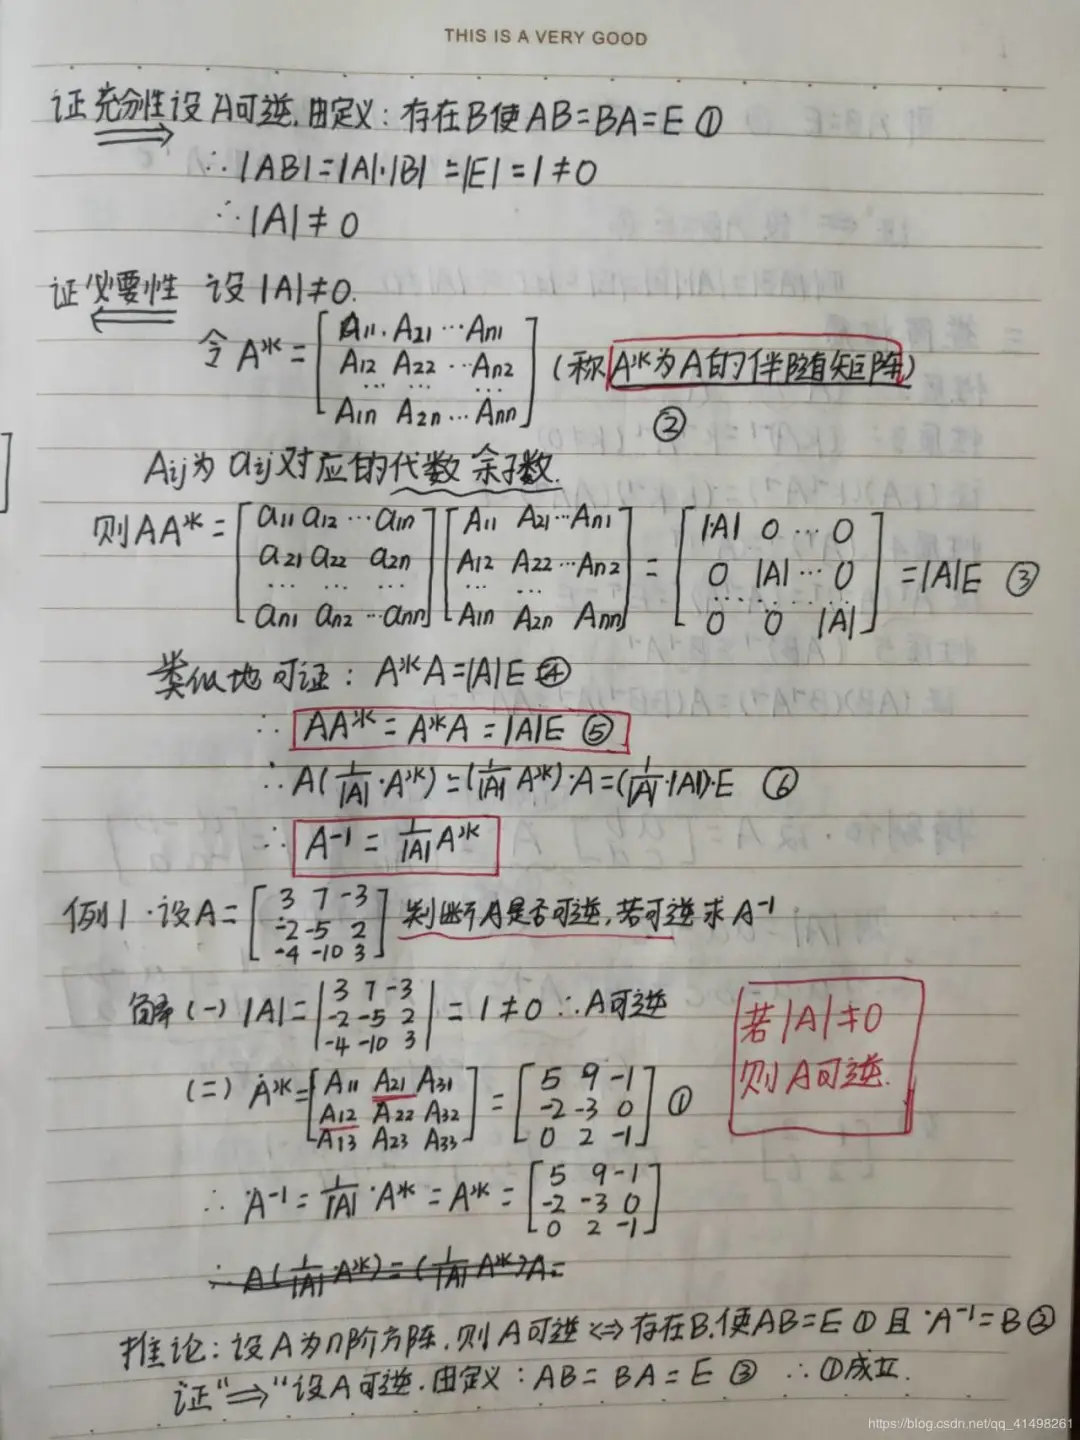 THIS IS A VERY GOOD
证充分性 设A可逆.由定义：存在B使AB=BA=E ①
∴|AB|=|A|·|B|=|E|=1≠0
∴|A|≠0
证必要性 设|A|≠0.
令A*=[A11 A21 ⋯ An1
A12 A22 ⋯ An2
⋯ ⋯ ⋯
A1n A2n ⋯ Ann] (称A*为A的伴随矩阵)
②
Aij为aij对应的代数余子数.
则AA*=[a11 a12 ⋯ a1n [A11 A21 ⋯ An1 [|A| 0 ⋯ 0
a21 a22 a2n A12 A22 ⋯ An2 = 0 |A| ⋯ 0 =|A|E ③
⋯ ⋯ ⋯ ⋯ ⋯ ⋯⋯⋯
an1 an2 ⋯ ann] A1n A2n Ann] 0 0 |A|]
类似地可证：A*A=|A|E ④
∴ AA*=A*A=|A|E ⑤
∴A(1/|A|·A*)=(1/|A| A*)·A=(1/|A|·|A|)·E ⑥
∴ A-1=1/|A| A*
例1.设A=[3 7 -3
-2 -5 2
-4 -10 3] 判断A是否可逆,若可逆求A-1
解(一) |A|=|3 7 -3
-2 -5 2
-4 -10 3| =1≠0 ∴A可逆
若|A|≠0
则A可逆.
(二) A*=[A11 A21 A31 [5 9 -1
A12 A22 A32 = -2 -3 0 ①
A13 A23 A33] 0 2 -1]
∴ A-1=1/|A|·A*=A*=[5 9 -1
-2 -3 0
0 2 -1]
∴ A(1/|A|·A*)=(1/|A| A*)A=
推论：设A为n阶方阵.则A可逆<=>存在B.使AB=E ①且A-1=B ②
证"=>"设A可逆.由定义：AB=BA=E ③ ∴①成立.
https://blog.csdn.net/qq_41498261